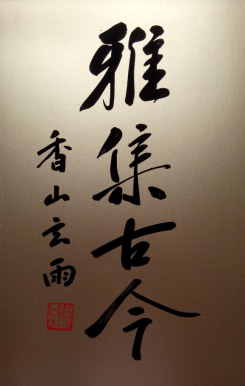 雅集古今
香山玄雨